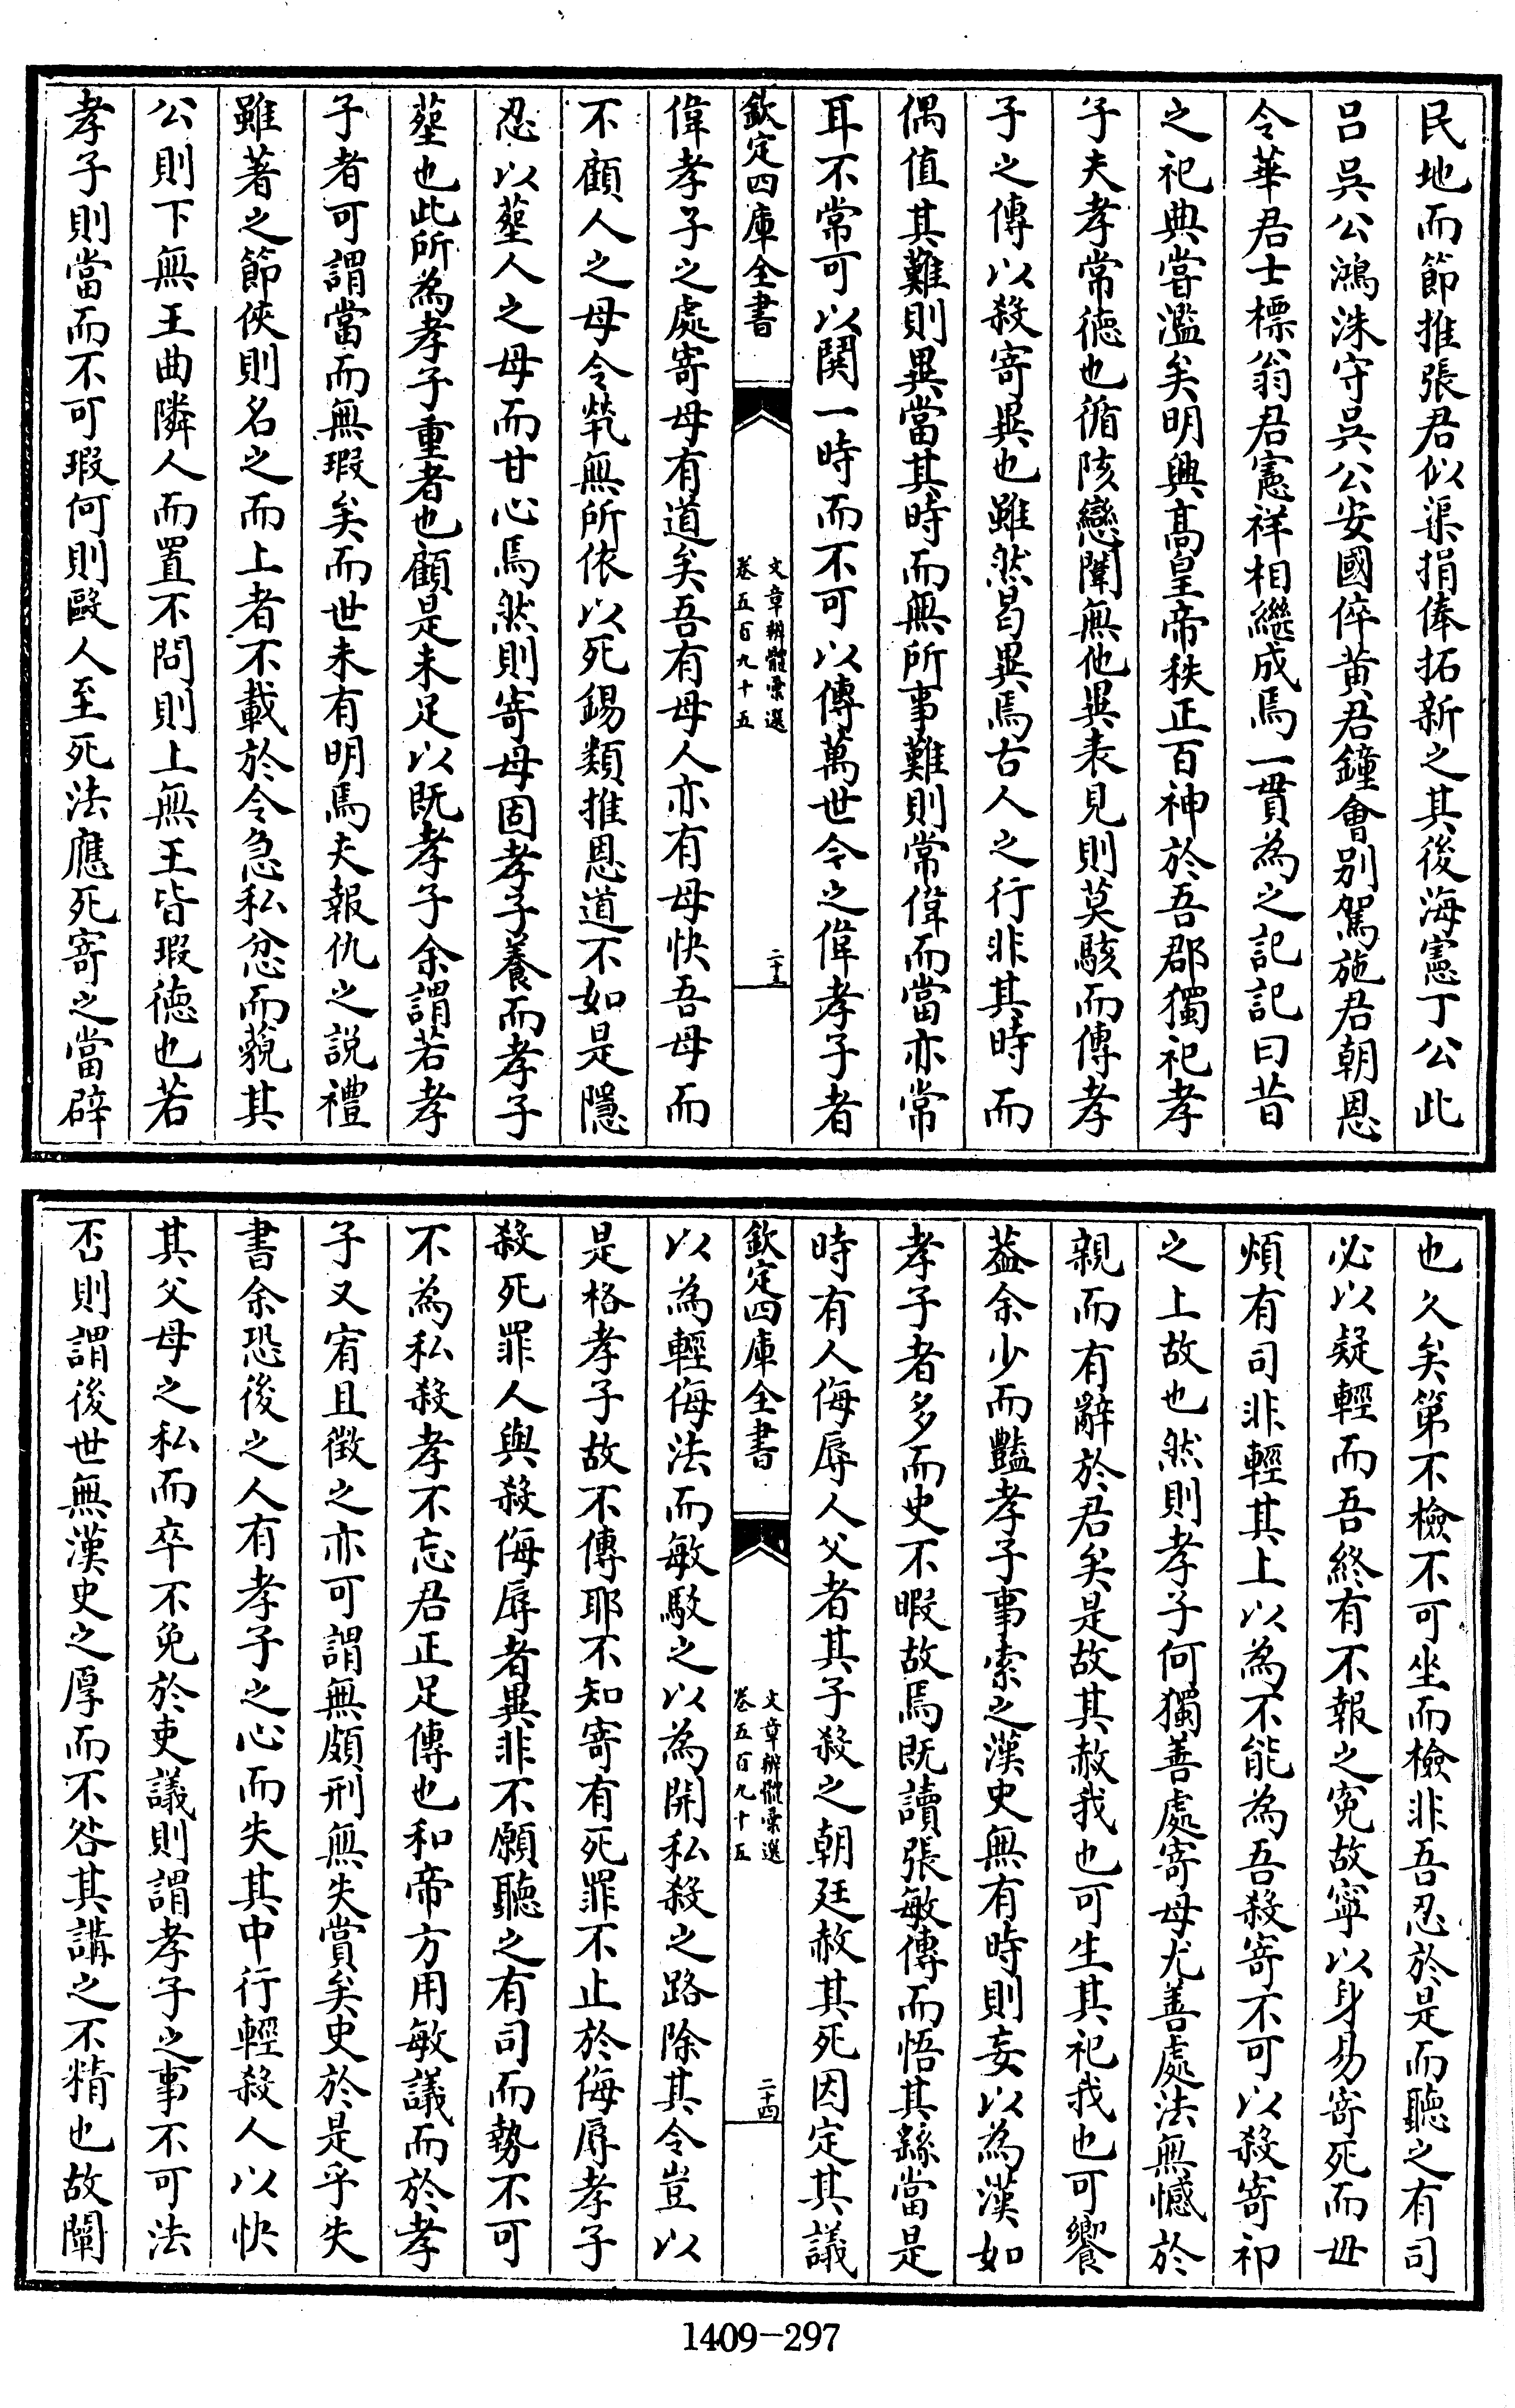 民地而節推張君似渠捐俸拓新之其後海憲丁公此
呂吳公鴻洙守吳公安國倅黄君鐘會别駕施君朝恩
令華君士標翁君憲祥相繼成焉一貫為之記記曰昔
之祀典嘗濫矣明興髙皇帝秩正百神於吾郡獨祀孝
子夫孝常徳也循陔戀闈無他異表見則莫駭而傳孝
子之傳以殺寄異也雖然曷異焉古人之行非其時而
偶值其難則異當其時而無所事難則常偉而當亦常
耳不常可以関一時而不可以傳萬世令之偉孝子者
欽定四庫全書
文章辨體彙選
卷五百九十五
二十三
偉孝子之處寄母有道矣吾有母人亦有母快吾母而
不顧人之母令煢無所依以死錫類推恩道不如是隱
忍以塟人之母而甘心焉然則寄母固孝子養而孝子
塟也此所為孝子重者也顧是未足以既孝子余謂若孝
子者可謂當而無瑕矣而世未有明焉夫報仇之説禮
雖著之節俠則名之而上者不載於令急私忿而藐其
公則下無王曲隣人而置不問則上無王皆瑕徳也若
孝子則當而不可瑕何則毆人至死法應死寄之當辟
也久矣第不檢不可坐而檢非吾忍於是而聽之有司
必以疑輕而吾終有不報之寃故寧以身易寄死而毋
煩有司非輕其上以為不能為吾殺寄不可以殺寄祁
之上故也然則孝子何獨善處寄母尤善處法無憾於
親而有辭於君矣是故其赦我也可生其祀我也可饗
葢余少而豔孝子事索之漢史無有時則妄以為漢如
孝子者多而史不暇故焉既讀張敏傳而悟其繇當是
時有人侮辱人父者其子殺之朝廷赦其死因定其議
欽定四庫全書
文章辨體彙選
卷五百九十五
二十四
以為輕侮法而敏駮之以為開私殺之路除其令豈以
是格孝子故不傳耶不知寄有死罪不止於侮辱孝子
殺死罪人與殺侮辱者異非不願聽之有司而勢不可
不為私殺孝不忘君正足傳也和帝方用敏議而於孝
子又宥且徵之亦可謂無頗刑無失賞矣史於是乎失
書余恐後之人有孝子之心而失其中行輕殺人以快
其父母之私而卒不免於吏議則謂孝子之事不可法
否則謂後世無漢史之厚而不咎其講之不精也故闡
1409-297